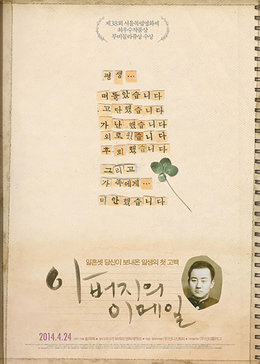 최우수작품상
평생...
떠돌았습니다
고단했습니다
가난했습니다
외로웠습니다
후회했습니다
그리고
가족에게...
미안했습니다
일흔셋 당신이 보내온 일생의 첫 고백
아버지의
이메일
2014.4.24